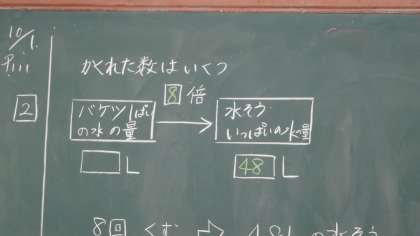 10/1
P.111
かくれた数はいくつ
2
8倍
バケツ1ぱい
の水の量
水そう
いっぱいの水の量
□L
48L
8回くむ ⇨ 48Lの水そう